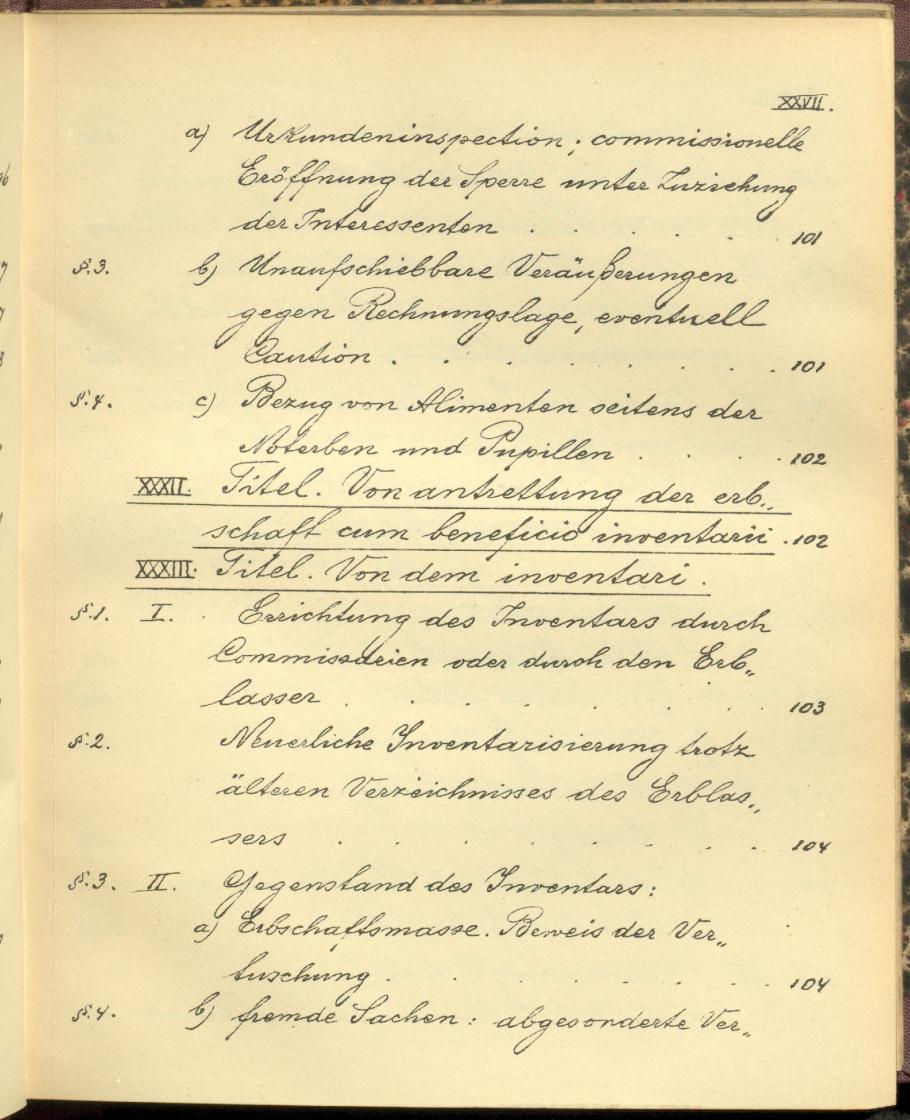 XXVII.
a) Urkundeninspection; commissionelle
Eröffnung der Sperre unter Zuziehung
der Interessenten . . . . . 101
§.3. b) Unaufschiebbare Veräußerungen
gegen Rechnungslage, eventuell
Caution . . . . . . . 101
§.4. c) Bezug von Alimenten seitens der
Noterben und Pupillen . . . . 102
XXXII. Titel. Von antrettung der erb„
schaft cum beneficio inventarii . 102
XXXIII. Titel. Von dem inventari .
§.1. I. Errichtung des Inventars durch
Commissarien oder durch den Erb„
lasser . . . . . . . . 103
§.2. Neuerliche Inventarisierung trotz
älteren Verzeichnisses des Erblas„
sers . . . . . . . . 104
§.3. II. Gegenstand des Inventars:
a) Erbschaftsmasse. Beweis der Ver„
tuschung . . . . . . . 104
§.4. b) fremde Sachen: abgesonderte Ver„